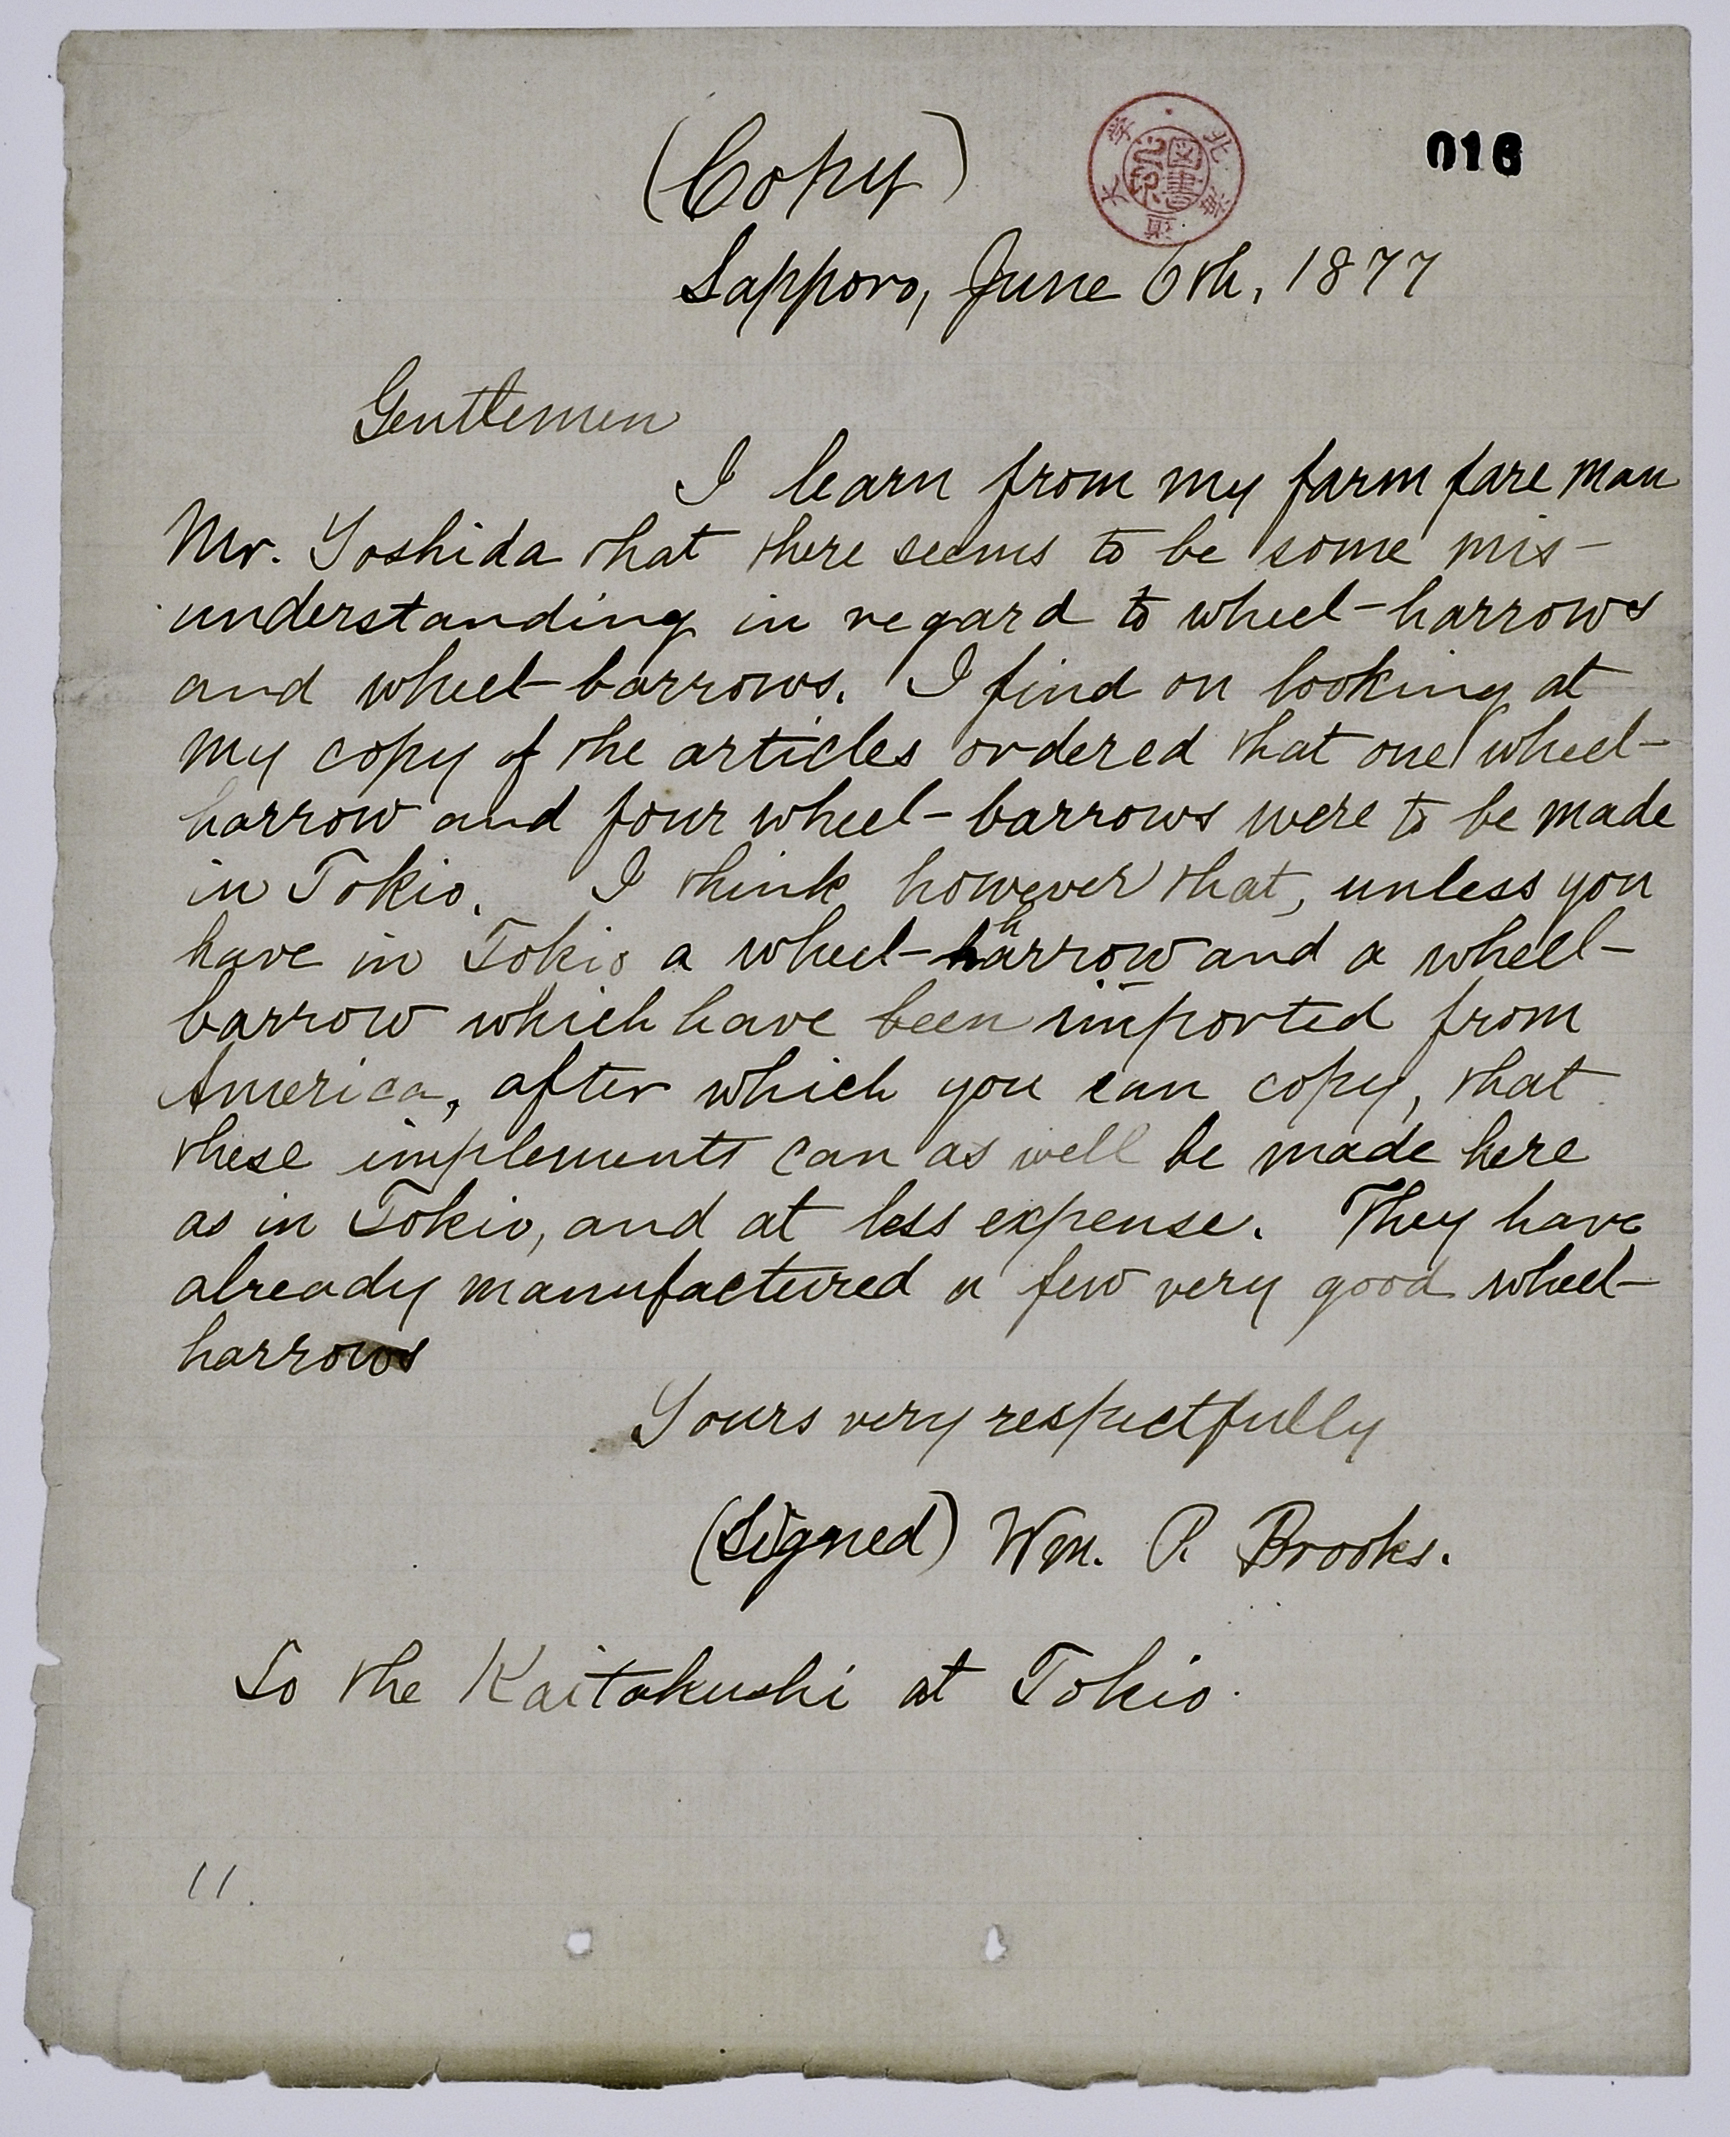 (Copy)
016
北海道大学
図書
Sapporo, June 6th, 1877
Gentlemen
I learn from my farm fore man
Mr. Yoshida that there seems to be some mis-
understanding in regard to wheel-harrows
and wheel-barrows. I find on looking at
my copy of the articles ordered that one wheel-
harrow and four wheel-barrows were to be made
in Tokio. I think however that, unless you
have in Tokio a wheel-harrow and a wheel-
barrow which have been imported from
America, after which you can copy, that
these implements can as well be made here
as in Tokio, and at less expense. They have
already manufactured a few very good wheel-
harrows
Yours very respectfully
(Signed) Wm. P. Brooks.
To the Kaitakushi at Tokio.
11.